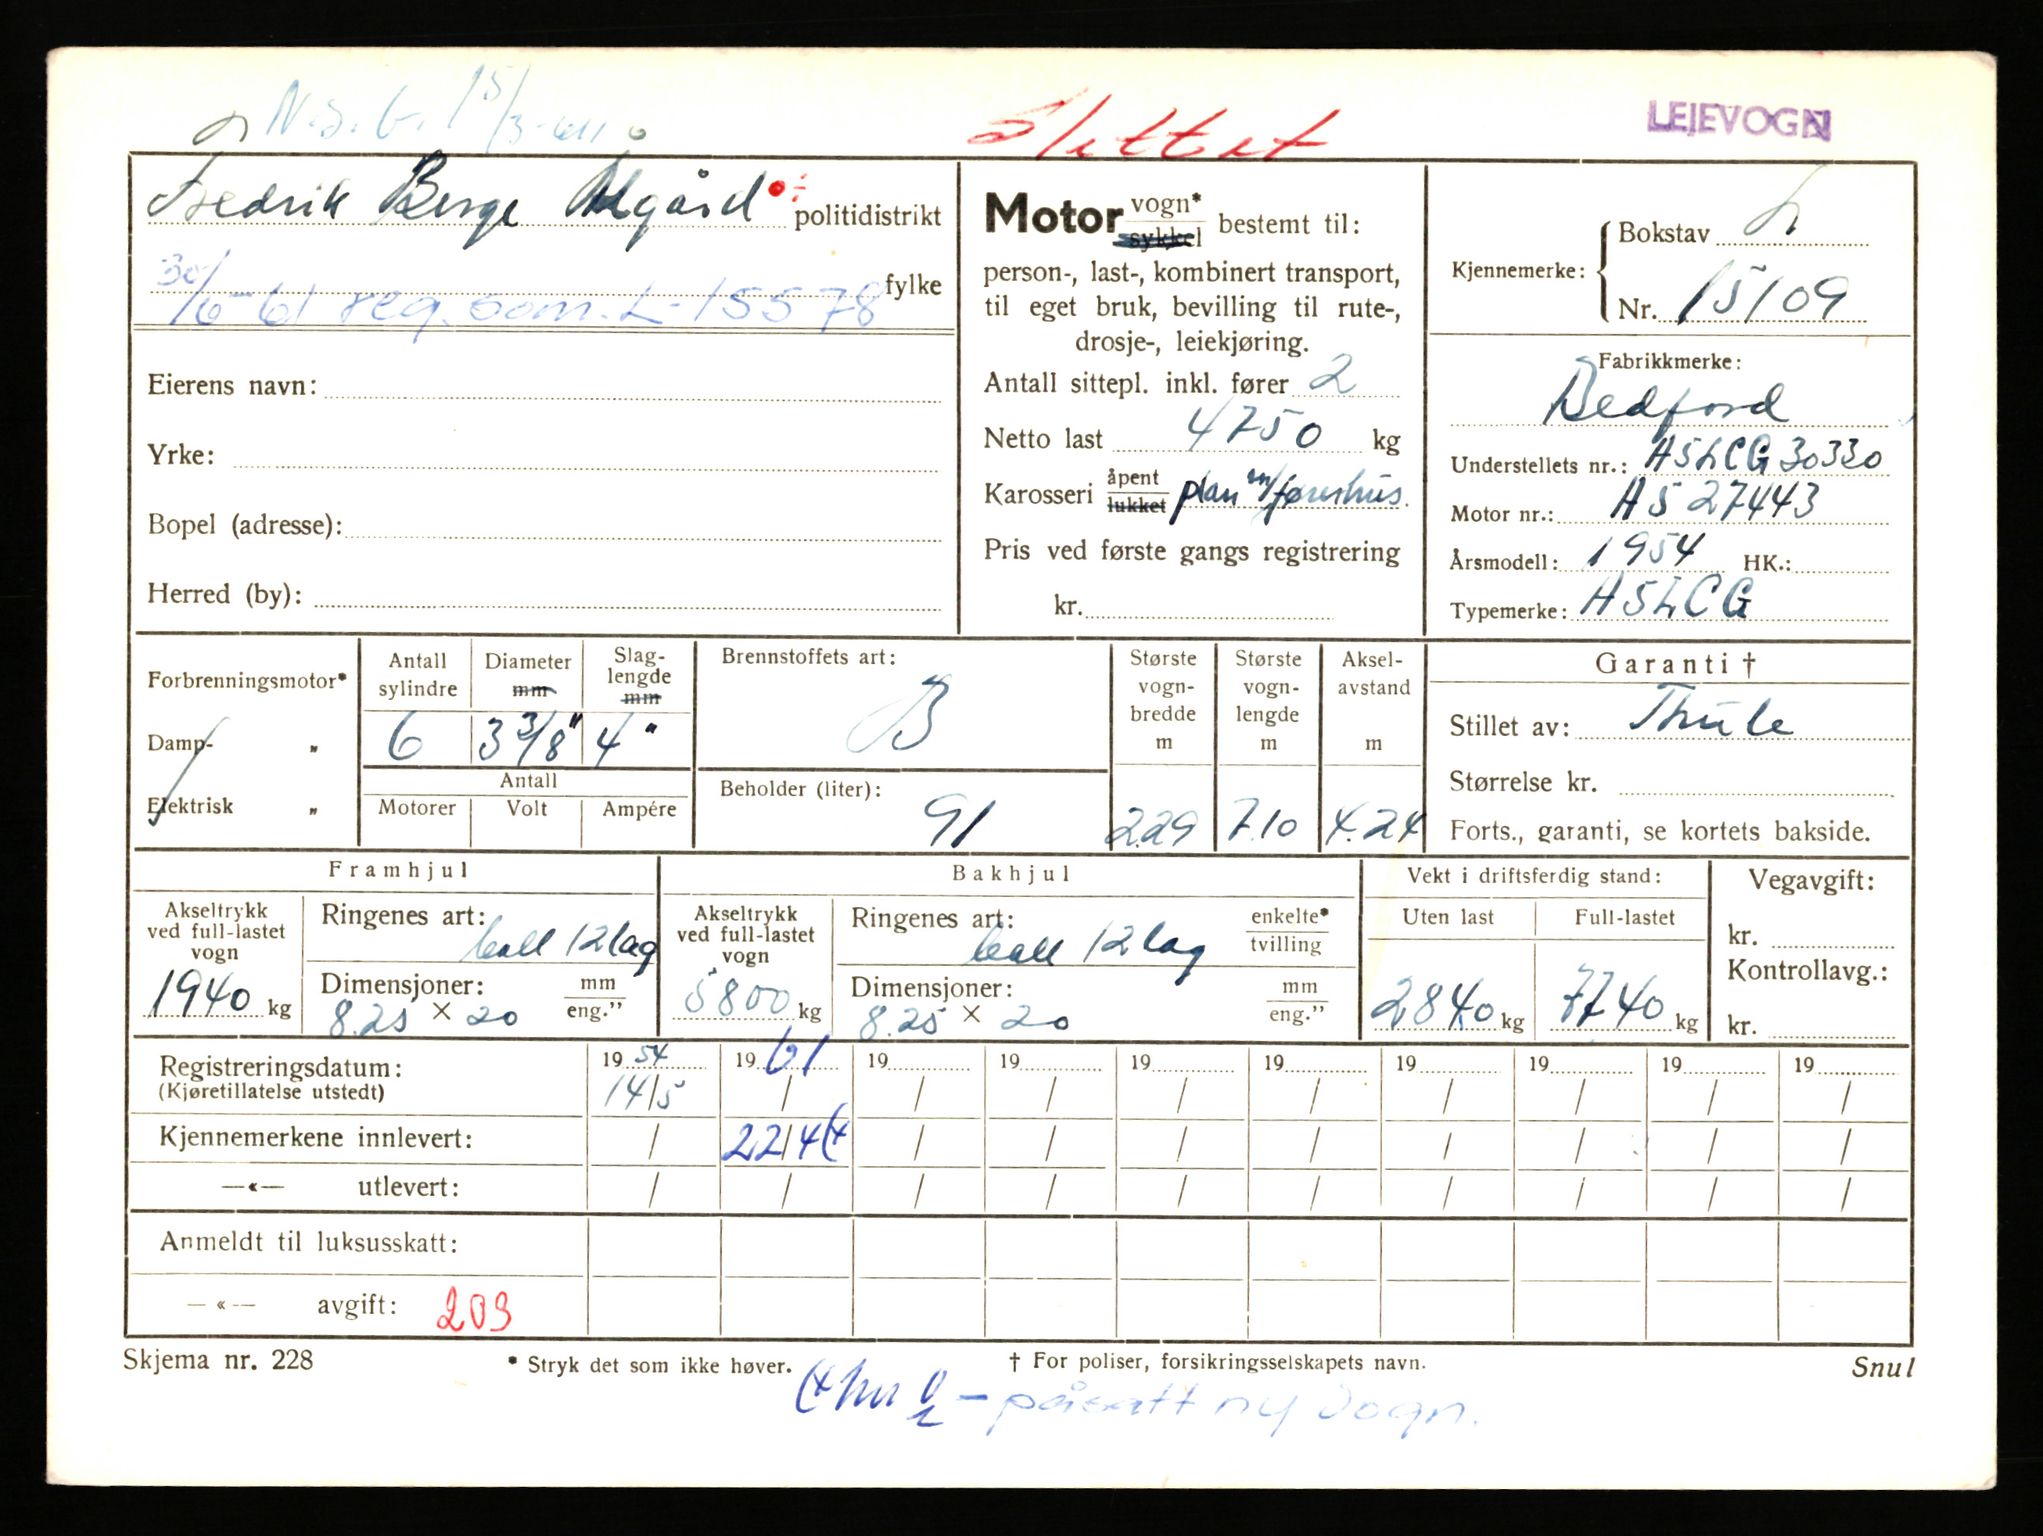 N.S.G. 15/3-61
Slettet
LEIEVOGN
Fredrik Berge Ålgård politidistrikt
30/6-61 reg. som. L-15578 fylke
Eierens navn:
Yrke:
Bopel (adresse):
Herred (by):
Motor vogn* sykkel bestemt til:
person-, last-, kombinert transport,
til eget bruk, bevilling til rute-,
drosje-, leiekjøring.
Antall sittepl. inkl. fører 2
Netto last 4750 kg
Karosseri åpent lukket plan m/førerhus.
Pris ved første gangs registrering
kr.
Kjennemerke: Bokstav L
Nr. 15109
Fabrikkmerke:
Bedford
Understellets nr.: A5LCG30330
Motor nr.: A5 27443
Årsmodell: 1954 HK.:
Typemerke: A5LCG
Forbrenningsmotor*
Damp- „
Elektrisk „
Antall sylindre 6
Diameter mm 3 3/8"
Slaglengde mm 4"
Antall
Motorer Volt Ampére
Brennstoffets art:
B
Beholder (liter):
91
Største vognbredde m 2.29
Største vognlengde m 7.10
Akselavstand m 4.24
Garanti †
Stillet av: Thule
Størrelse kr.
Forts., garanti, se kortets bakside.
Framhjul
Akseltrykk ved full-lastet vogn 1940 kg
Ringenes art: ball 12 lag
Dimensjoner: 8.25 × 20 mm eng."
Bakhjul
Akseltrykk ved full-lastet vogn 5800 kg
Ringenes art: ball 12 lag enkelte* tvilling
Dimensjoner: 8.25 × 20 mm eng."
Vekt i driftsferdig stand:
Uten last 2840 kg
Full-lastet 7740 kg
Vegavgift:
kr.
Kontrollavg.:
kr.
Registreringsdatum: 19 54 19 61 19 19 19 19 19 19 19 19
(Kjøretillatelse utstedt) 14/5 / / / / / / / / /
Kjennemerkene innlevert: / 22/4 (x / / / / / / / /
—«— utlevert: / / / / / / / / / /
Anmeldt til luksusskatt:
—«— avgift: 203
Skjema nr. 228
* Stryk det som ikke høver.
† For poliser, forsikringsselskapets navn.
Snul
– påsatt ny vogn.